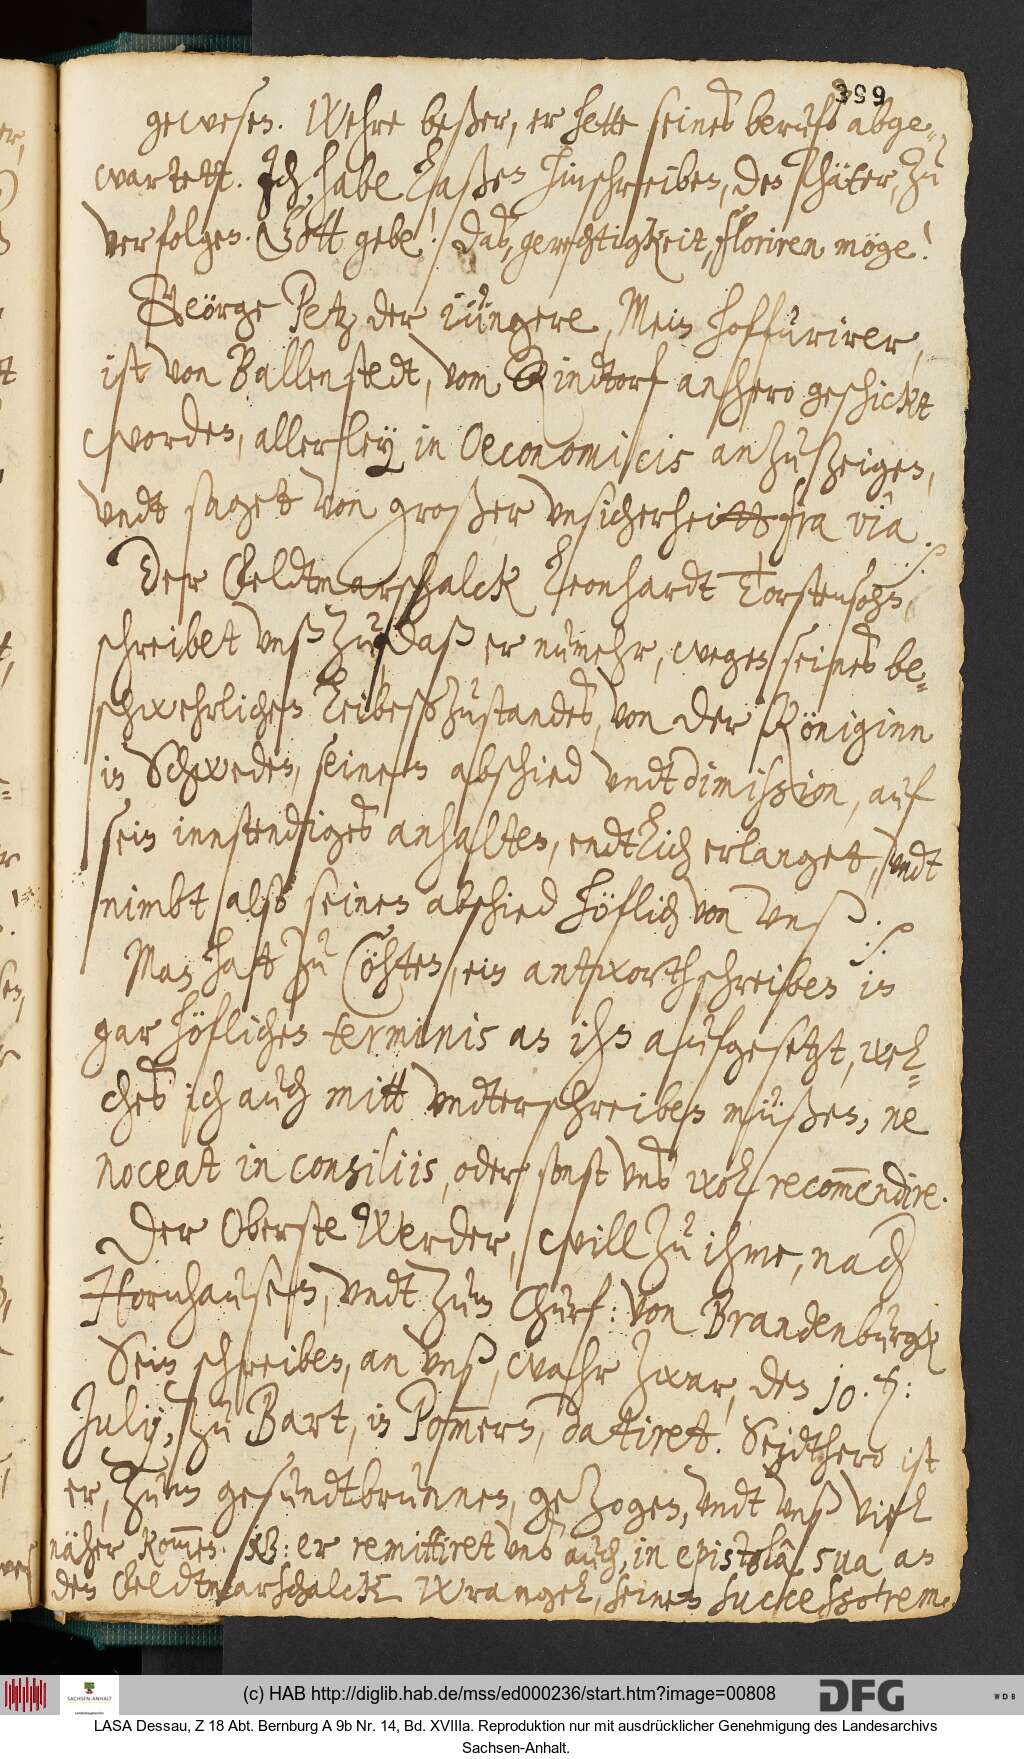 399
gewesen. Wehre beßer, er hette seines berufs abge-
wartett. Ich habe laßen hinschreiben, den Thäter, zu
verfolgen. Gott gebe! das, gerechtigkeit, floriren möge!
Geörge Petz, der iüngere, Mein hoffurirer,
ist von Ballenstedt, vom Rindtorf anhero geschickt
worden, allerley in Oeconomicis anzuzeigen,
undt saget von großer unsicherheitt fra via ./.
Der Feldtmarschalck Leonhardt Torstensohn,
schreibet unß zu, daß er nunmehr, wegen seines be-
schwehrlichen Leibeßzustandes, von der Königinn
in Schweden, seinen abschied undt dimission, auf
sein innstendiges anhalten, endtlich erlanget, undt
nimbt also seinen abschied höflich von unß ./.
Man hat zu Cöhten, ein antwortschreiben in
gar höflichen terminis an ihn aufgesetzt, wel-
ches ich auch mitt undterschreiben müßen, ne
noceat in consiliis, oder sonst uns wol recom̅endire.
Der Oberste Werder, will zu ihme, nach
Hornhausen, undt zum Churf: von Brandenburgk
Sein schreiben, an unß, wahr zwar, den 10. t:
July, zu Bart, in Pom̅ern, datiret. Seidthero ist
er, zum gesundtbrunnen, gezogen, undt unß viel
näher kom̅en. NB: er remittiret uns auch, in epistola sua an
den Feldtmarschalck Wrangel, seinen successorem.
(c) HAB http://diglib.hab.de/mss/ed000236/start.htm?image=00808
SACHSEN-ANHALT
DFG
WDB
LASA Dessau, Z 18 Abt. Bernburg A 9b Nr. 14, Bd. XVIIIa. Reproduktion nur mit ausdrücklicher Genehmigung des Landesarchivs
Sachsen-Anhalt.